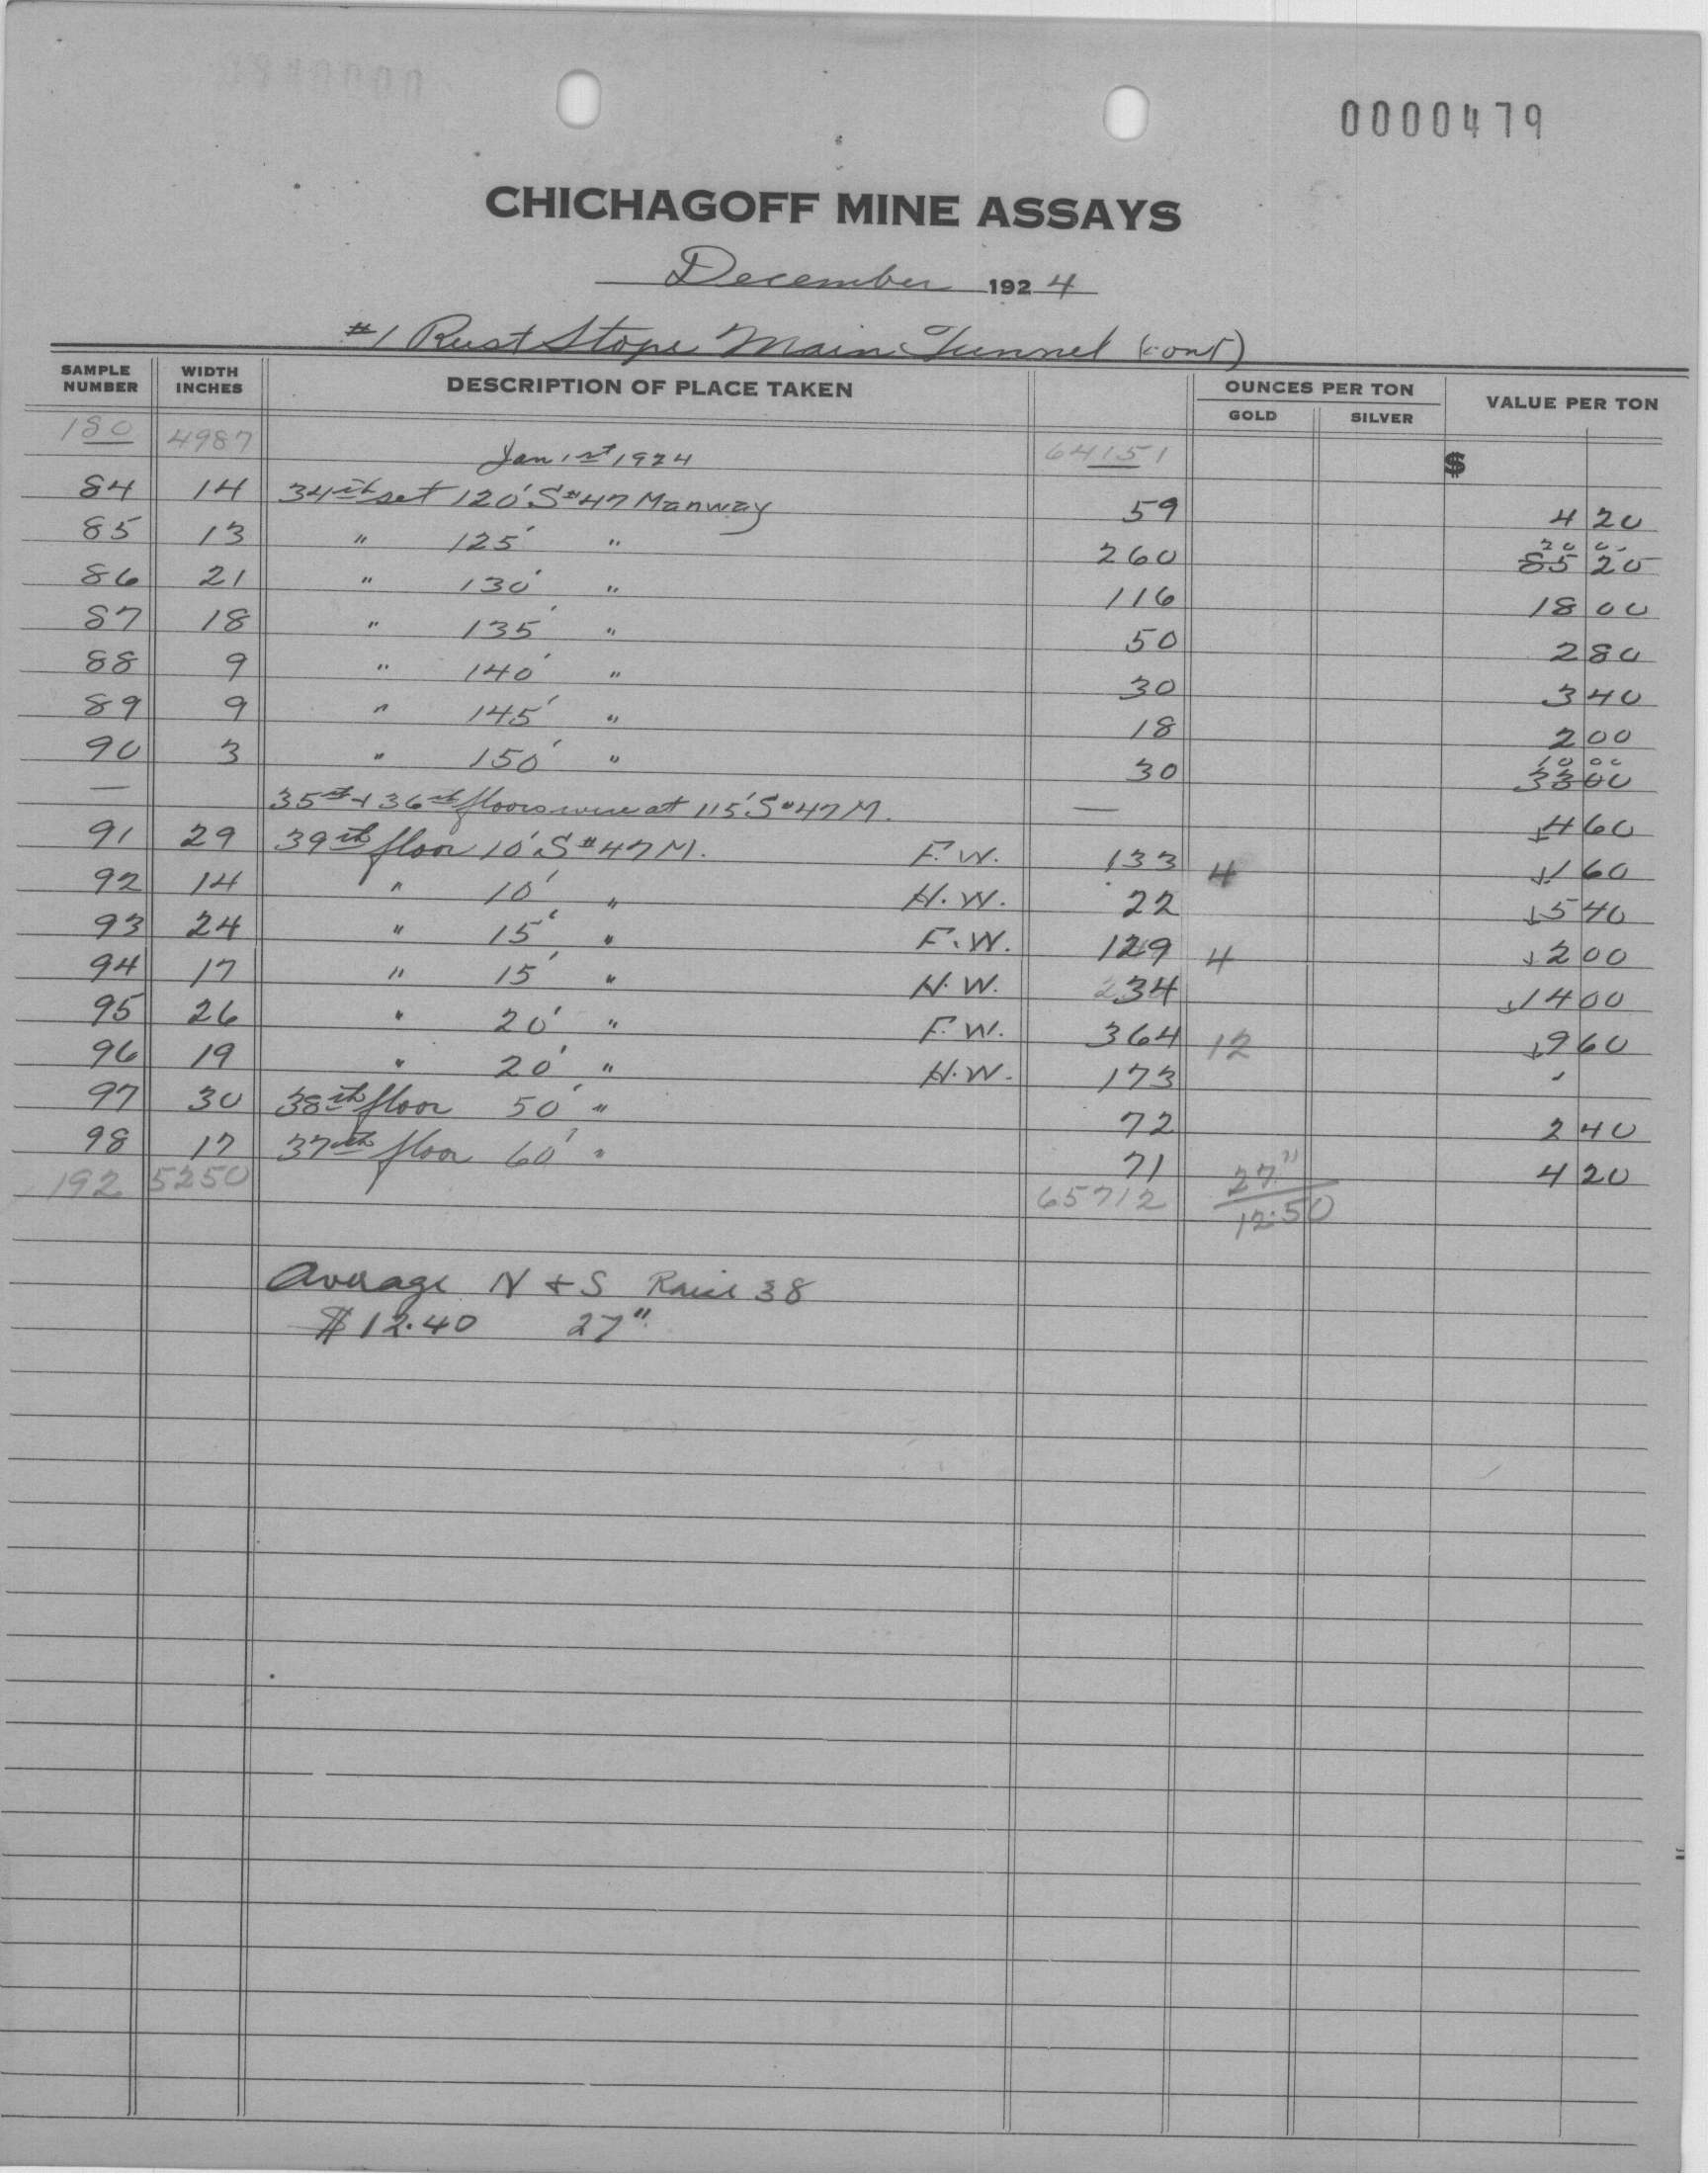 0000479
CHICHAGOFF MINE ASSAYS
December 1924
#1 Rust Stope Main Tunnel (cont)
SAMPLE NUMBER WIDTH INCHES DESCRIPTION OF PLACE TAKEN OUNCES PER TON GOLD SILVER VALUE PER TON
180 4987 Jan 1st 1924 64151 $
84 14 34th set 120' S #47 Manway 59 4 20
85 13 " 125' " 260 20 0 85 20
86 21 " 130' " 116 18 00
87 18 " 135' " 50 2 80
88 9 " 140' " 30 3 40
89 9 " 145' " 18 2 00
90 3 " 150' " 30 10 00 33 00
— 35th + 36th floors were at 115' S #47 M. — 4 60
91 29 39th floor 10' S #47 M. F.W. 133 4 1 60
92 14 " 10' " H.W. 22 5 40
93 24 " 15' " F.W. 129 4 2 00
94 17 " 15' " H.W. 234 14 00
95 26 " 20' " F.W. 364 12 9 60
96 19 " 20' " H.W. 173
97 30 38th floor 50' " 72 2 40
98 17 37th floor 60' " 71 27" 4 20
192 5250 65712 12.50
Average N + S Raise 38
$12.40 27"